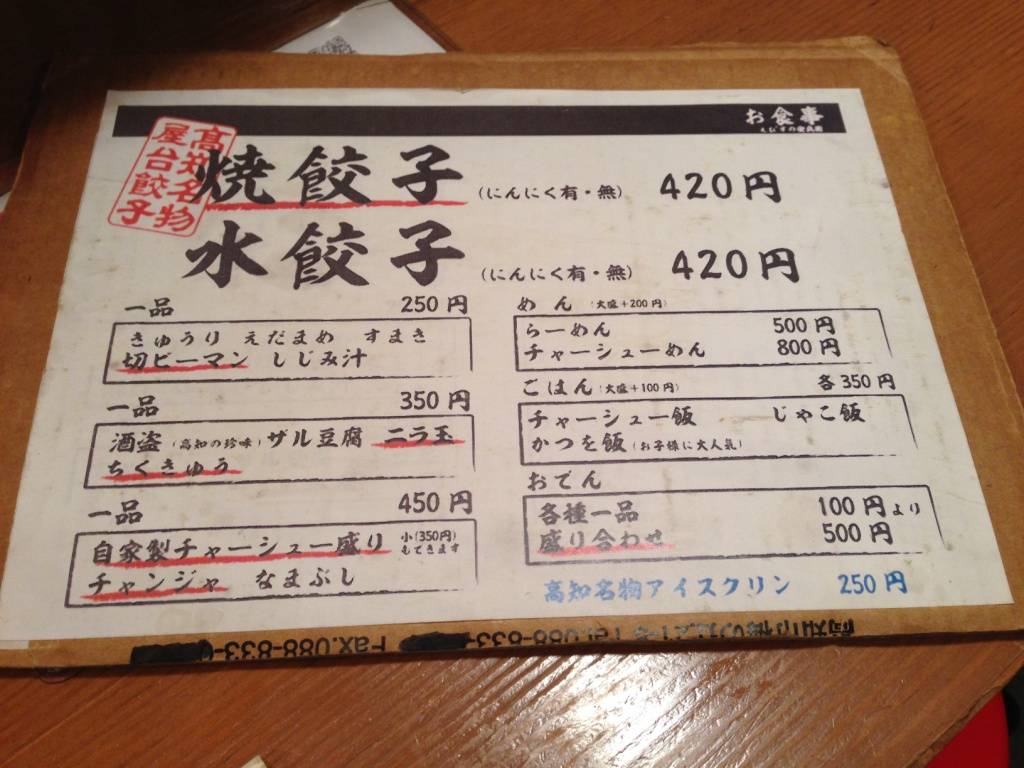 お食事
えびすの安兵衛
高知名物
屋台餃子
焼餃子 (にんにく有・無) 420円
水餃子 (にんにく有・無) 420円
一品 250円
きゅうり えだまめ すまき
切ピーマン しじみ汁
一品 350円
酒盗(高知の珍味)ザル豆腐 ニラ玉
ちくきゅう
一品 450円
自家製チャーシュー盛り 小(350円)もできます
チャンジャ なまぶし
めん (大盛+200円)
らーめん 500円
チャーシューめん 800円
ごはん(大盛+100円) 各350円
チャーシュー飯 じゃこ飯
かつを飯(お子様に大人気)
おでん
各種一品 100円より
盛り合わせ 500円
高知名物アイスクリン 250円
Fax.088-833-